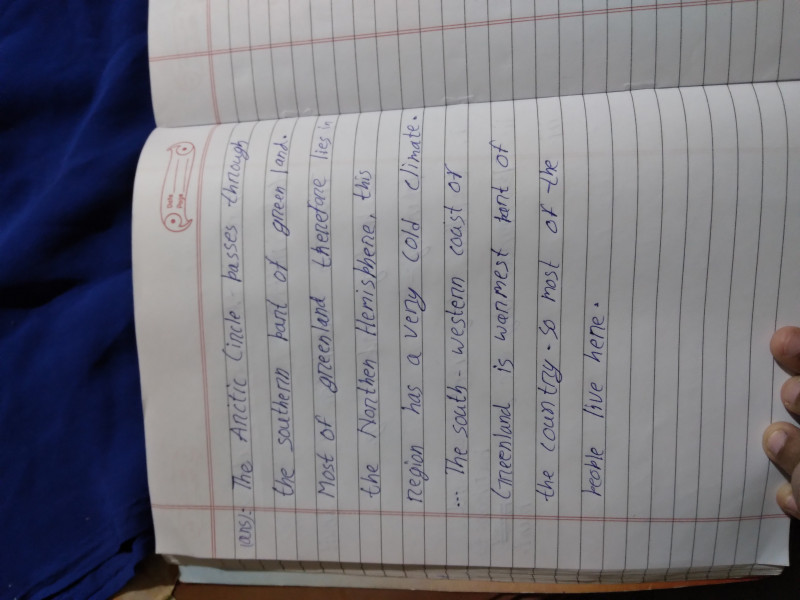 Date
Page
(ans): The Arctic Circle passes through
the southern part of green land.
Most of greenland therefore lies in
the Northen Hemisphere, this
region has a very cold climate.
... The south-western coast of
Greenland is warmest part of
the country. so most of the
people live here.